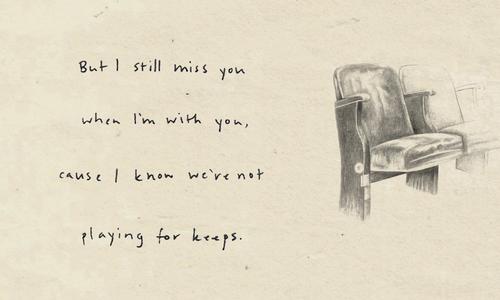 But I still miss you
when I'm with you,
cause I know we're not
playing for keeps.